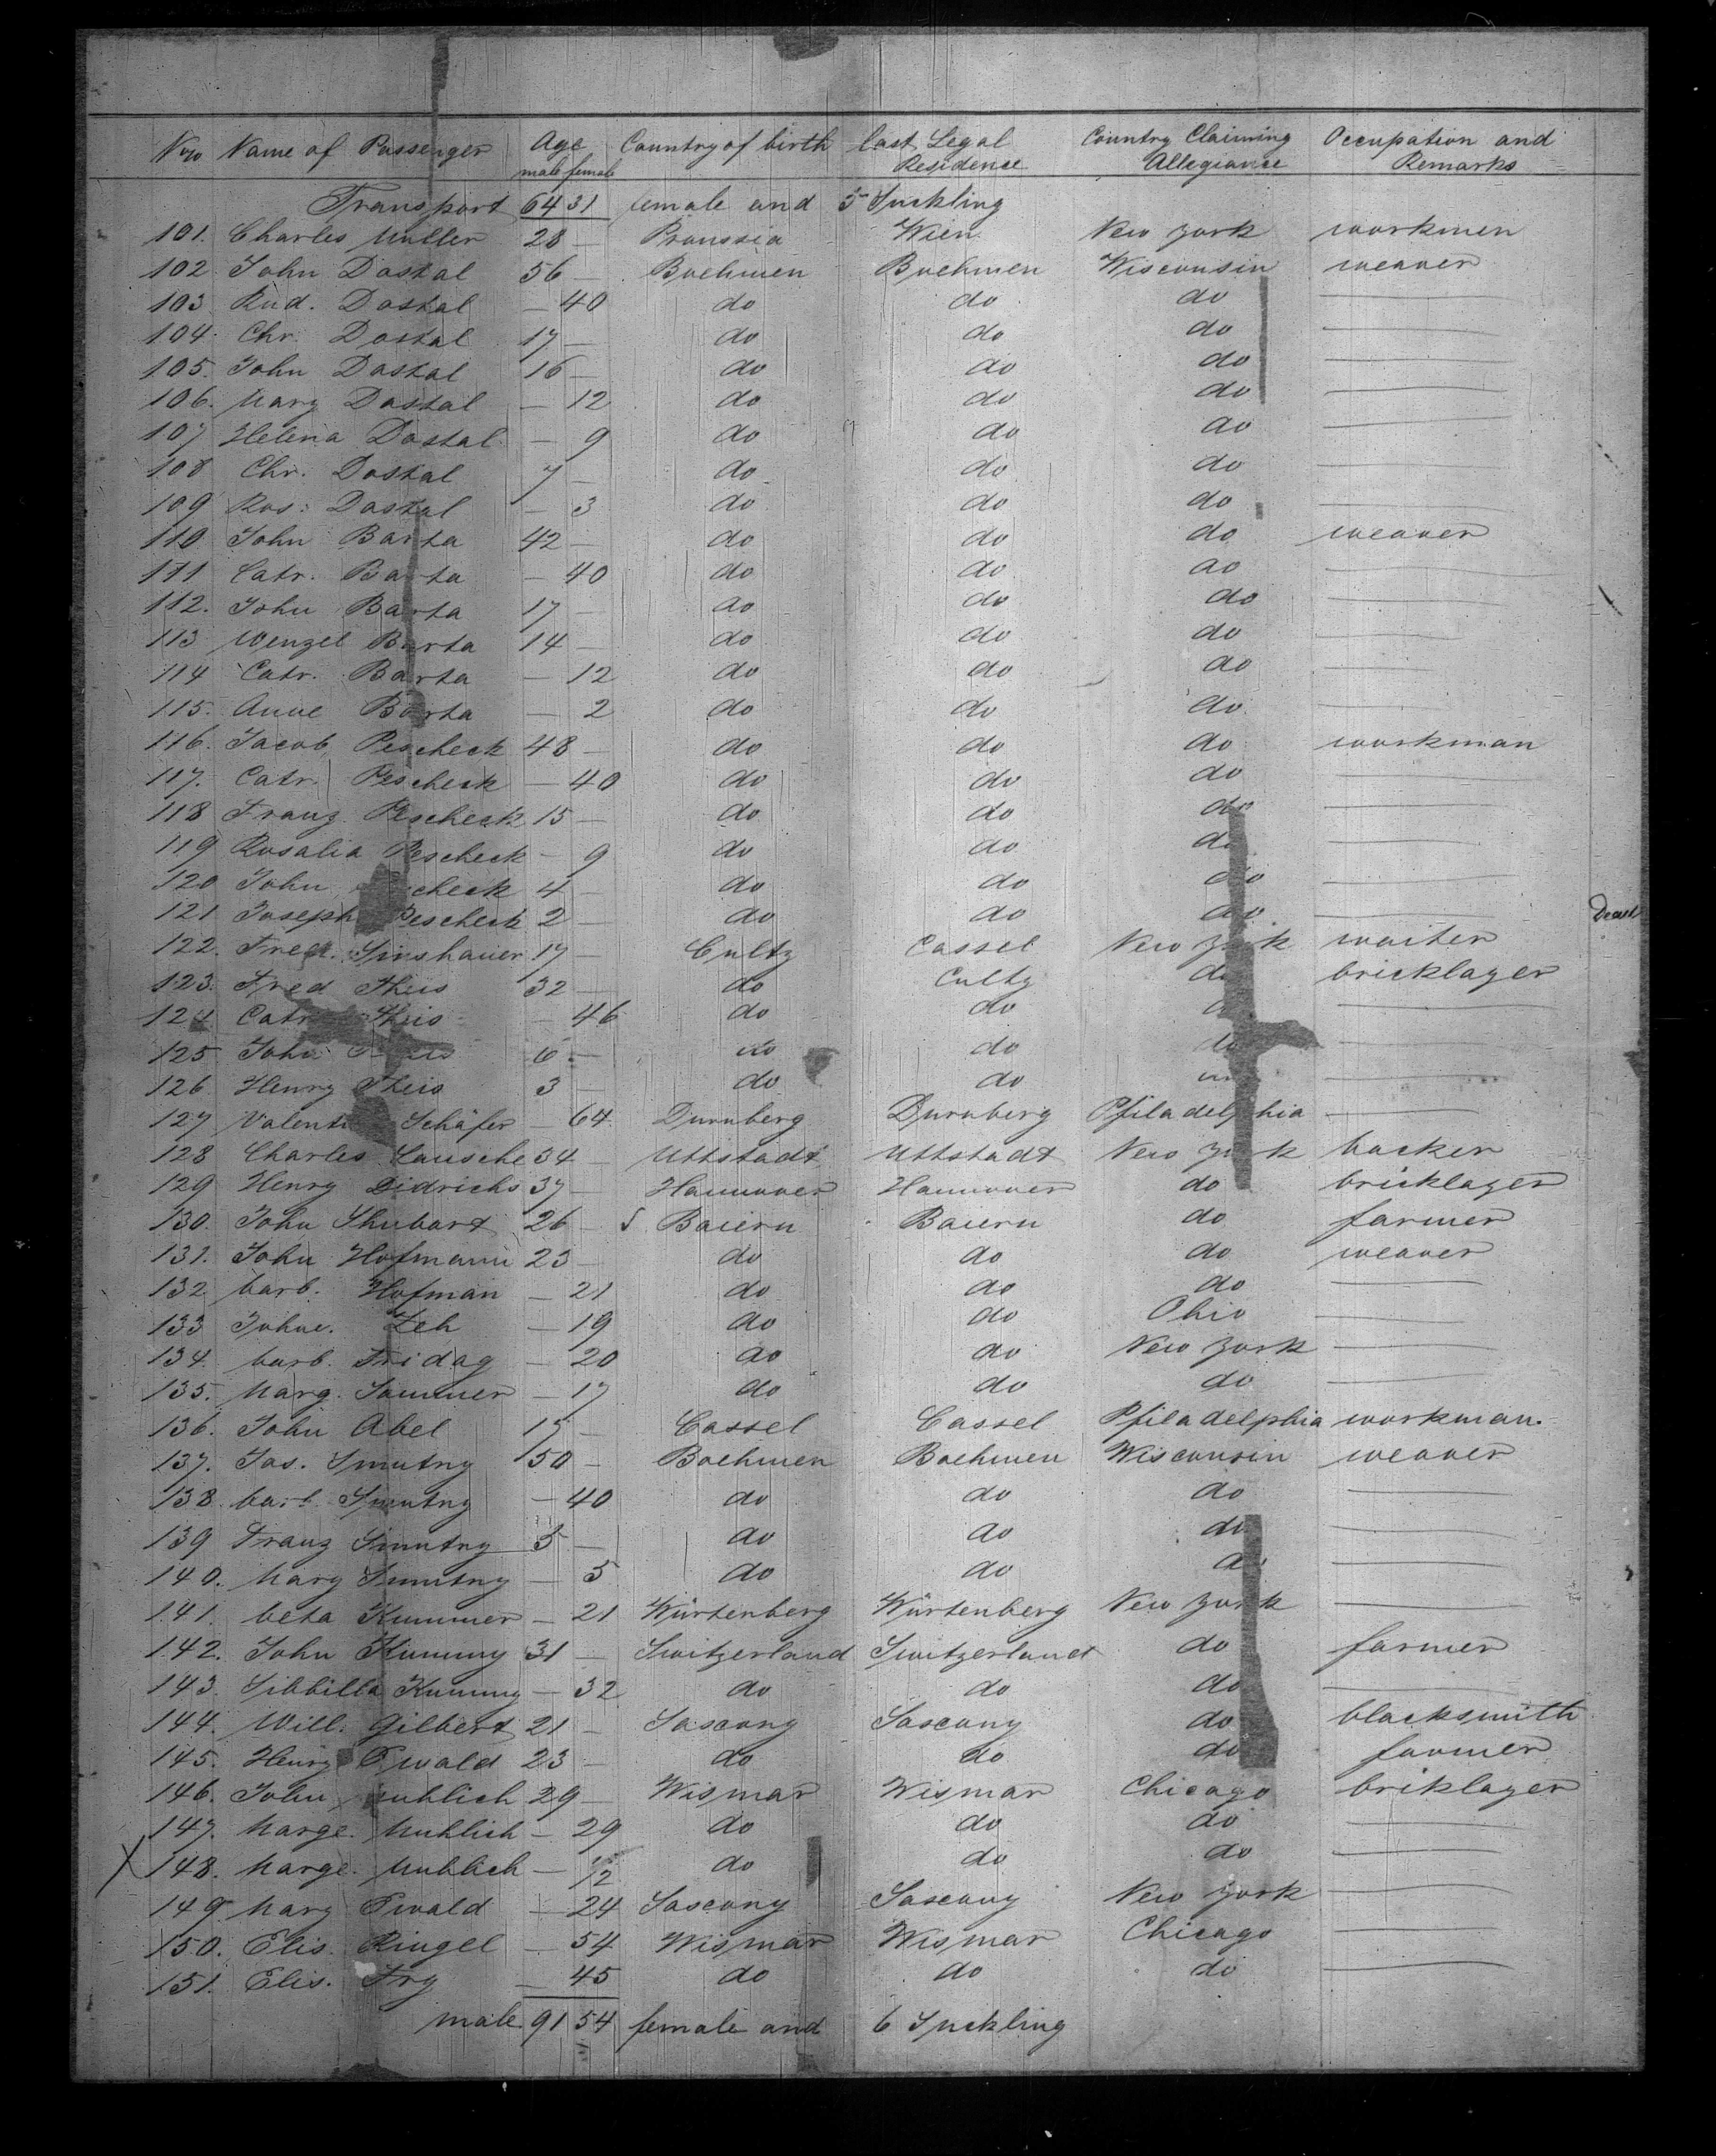 Nro Name of Passenger Age male female Country of birth last Legal Residence Country Claiming Allegiance Occupation and Remarks
Transport 64 31 female and 5 Suckling
101. Charles Muller 28 — Proussia Wien New York workmen
102 John Dostal 56 — Boehmen Boehmen Wisconsin weaver
103 Rud. Dostal — 40 do do do —
104. Chr. Dostal 17 — do do do —
105. John Dostal 16 — do do do —
106. Mary Dostal — 12 do do do —
107 Helena Dostal — 9 do do do —
108 Chr. Dostal 7 — do do do —
109 Ros: Dostal — 3 do do do —
110 John Barta 42 — do do do weaver
111 Catr. Barta — 40 do do do —
112. John Barta 17 — do do do —
113 Wenzel Barta 14 — do do do —
114 Catr. Barta — 12 do do do —
115. Anne Barta — 2 do do do —
116. Jacob Pescheck 48 — do do do workman
117. Catr. Pescheck — 40 do do do —
118 Franz Pescheck 15 — do do do —
119 Rosalia Pescheck — 9 do do do —
120 John check 4 — do do do —
121 Joseph Pescheck 2 — do do do — Dead
122. Fred. Sinshauer 17 — Cultz Cassel New York waiter
123. Fred Theis 32 — do Cultz do bricklayer
124 Catr Theis — 46 do do —
125 John 6 — do do do —
126 Henry Theis 3 — do do —
127 Valenti Schäfer — 64 Durnberg Durnberg Pfiladelphia —
128 Charles Lausche 34 — Uttstadt Uttstadt New York backer
129 Henry Didrichs 37 — Hannover Hannover do bricklager
130. John Shubart 26 — Baiern Baiern do farmer
131. John Hofmann 23 — do do do weaver
132 barb. Hofman — 21 do do do —
133 Johne. Zeh — 19 do do Ohio —
134. barb. Fridag — 20 do do New York —
135. Marg. Sommer — 17 do do do —
136. John Abel 17 — Cassel Cassel Pfiladelphia workman.
137. Jos. Smutny 50 — Boehmen Boehmen Wisconsin weaver
138. barb. Smutny — 40 do do do —
139 Franz Smutny 5 — do do do —
140. Mary Smutny — 5 do do do —
141. beta Kummer — 21 Würtenberg Würtenberg New York —
142. John Kummy 31 — Switzerland Switzerland do farmer
143. Sibbilla Kummy — 32 do do do —
144. Will. Gilbert 21 — Sascony Sascony do blacksmith
145. Henry Ewald 23 — do do do farmer
146. John uhlich 29 — Wismar Wismar Chicago briklager
147. Marge. Muhlich — 29 do do do —
X 148. Marge. Muhlich — 1/2 do do do —
149. Mary Ewald — 24 Sascony Sascony New York —
150. Elis. Ringel — 54 Wismar Wismar Chicago —
151. Elis. Fry — 45 do do do —
male 91 54 female and 6 Suckling